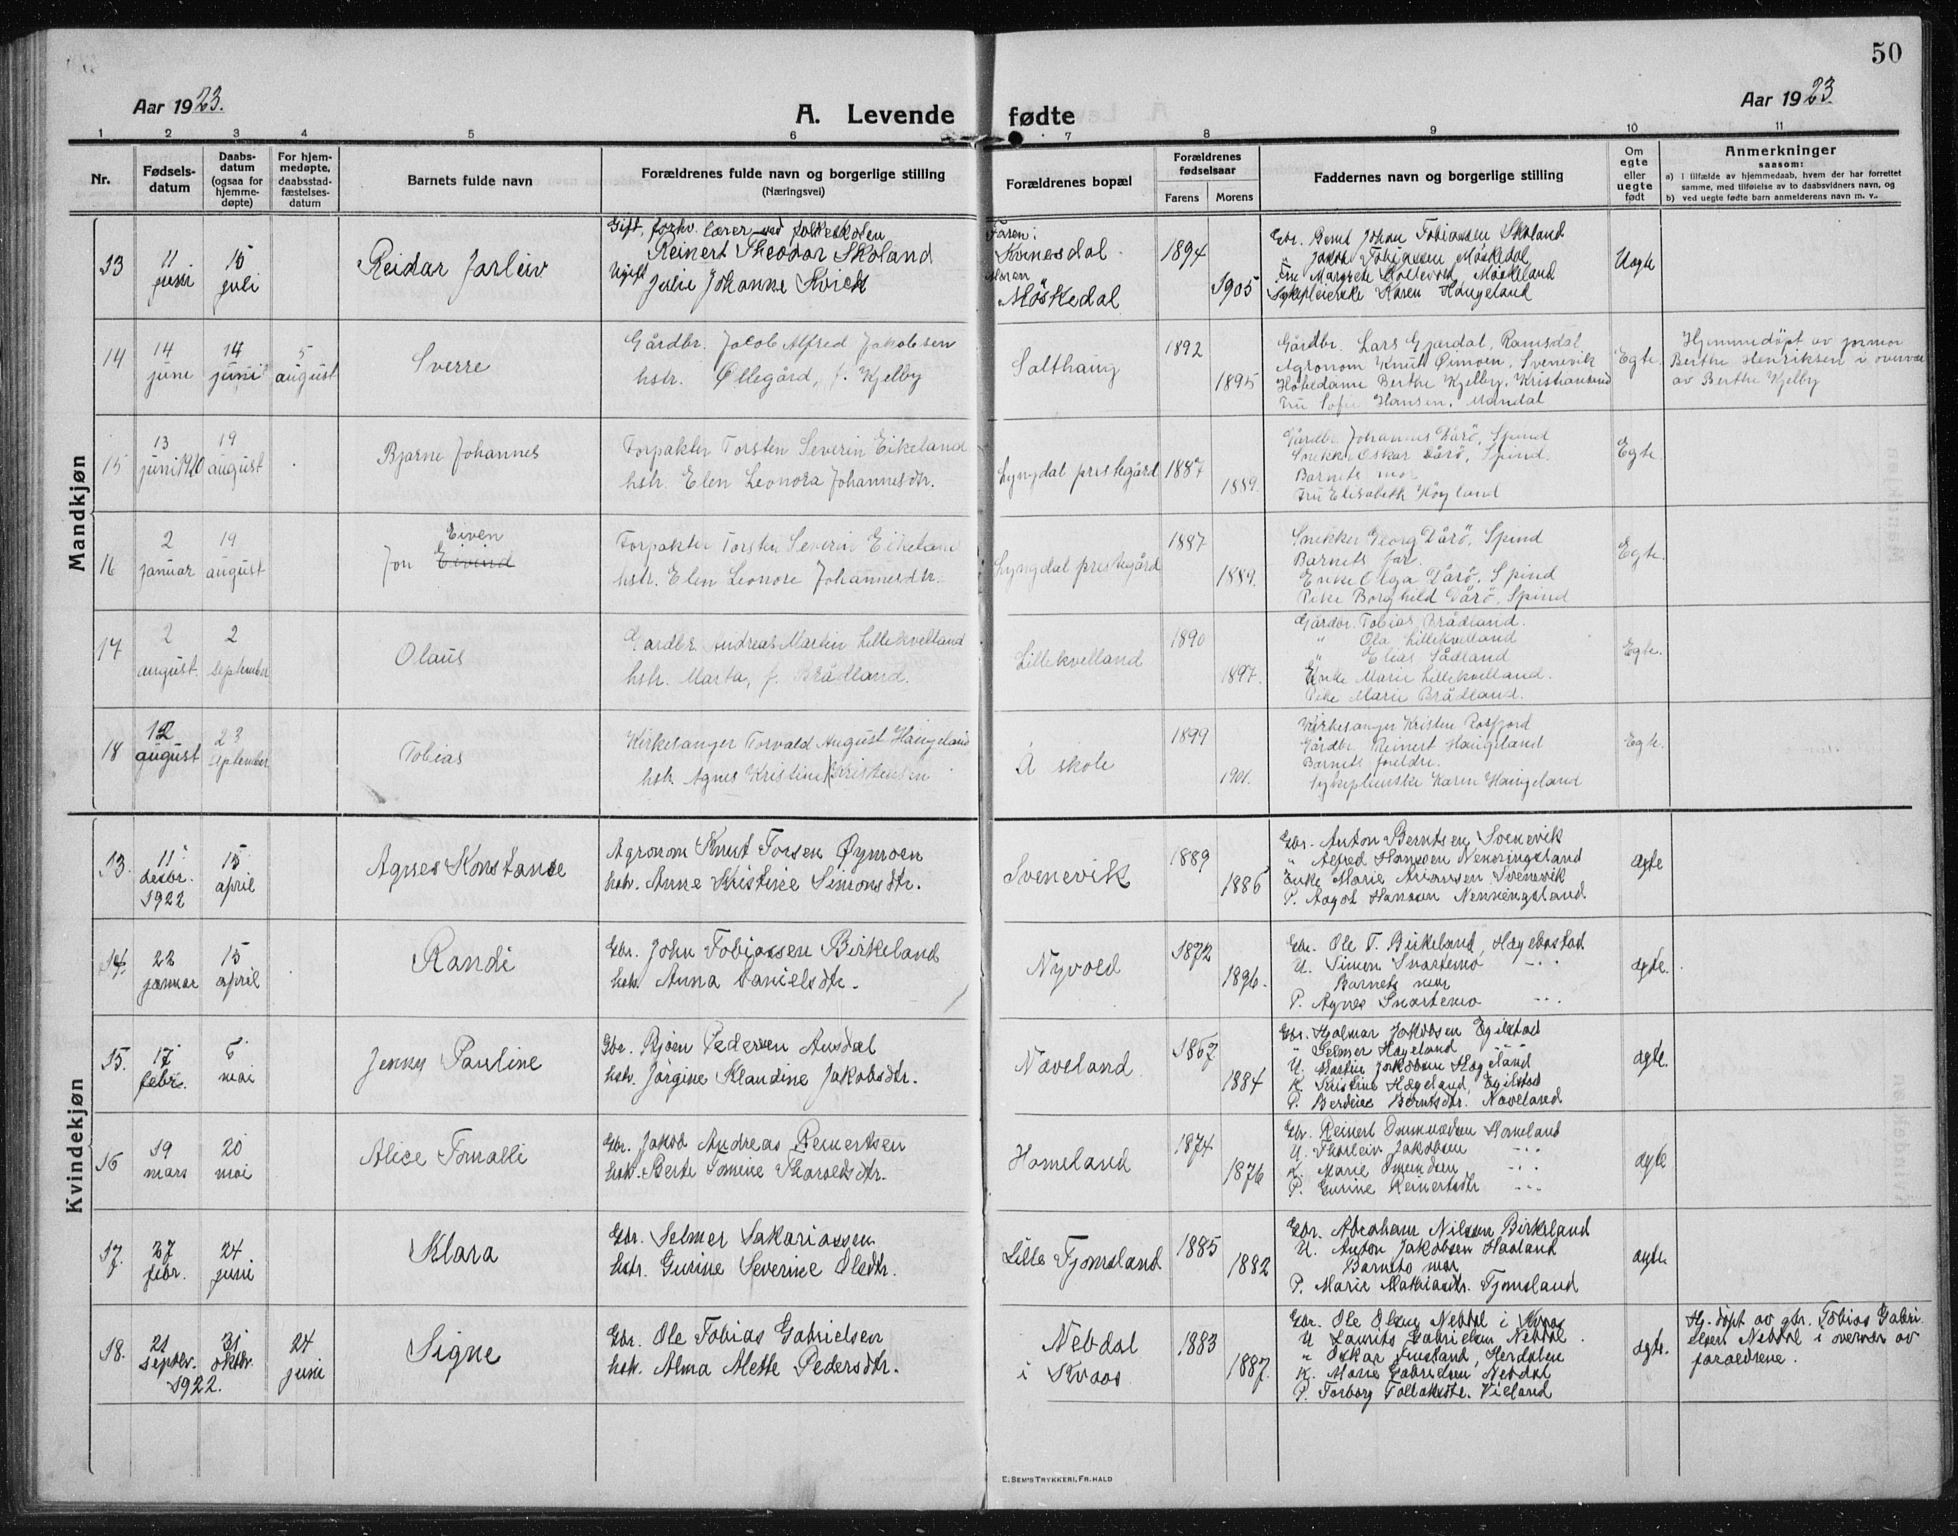 50
Aar 1923.
A. Levende fødte
Aar 1923.
1 2 3 4 5 6 7 8 9 10 11
Nr.
Fødsels-
datum
Daabs-
datum
(ogsaa for
hjemme-
døpte)
For hjem-
medøpte,
daabsstad-
fæstelses-
datum
Barnets fulde navn
Forældrenes fulde navn og borgerlige stilling
(Næringsvei)
Forældrenes bopæl
Forældrenes
fødselsaar
Farens Morens
Faddernes navn og borgerlige stilling
Om
egte
eller
uegte
født
Anmerkninger
saasom:
a) I tilfælde av hjemmedaab, hvem der har forrettet
samme, med tilføielse av to daabsvidners navn, og
b) ved uegte fødte barn anmelderens navn m. v..
Mandkjøn
13
11 juni
15 juli
Reidar Jarleiv
Gift, forhv. lærer ved folkeskolen
Reinert Theodor Skoland
Ugift Julie Johanne Kvick
Faren:
Kvinesdal
Moren
Möskedal
1894
1905
Gbr. Bernt Johan Tobiassen Skoland
" Jakob Tobiassen Møskedal
Fru Margrete Møskeland
Sykepleierske Karen Haugeland
Uegte
14
14 juni
14 juni
5 august
Sverre
Gårdbr. Jacob Alfred Jakobsen
hstr. Øllegård, f. Kjelby
Salthaug
1892
1895
Gårdbr. Lars Gjerdal, Ramsdal
Agronom Knut Øimoen, Svenevik
Hoteldame Berthe Kjelby, Kristiansand
Fru Sofie Hansen, Mandal
Egte.
Hjemmedøpt av jormor
Berthe Henriksen i overvær
av Berthe Kjelby
15
13 juni 1920
19 august
Bjarne Johannes
Forpakter Torsten Severin Eikeland
hstr. Elen Leonora Johannesdtr.
Lyngdal prestegård
1887
1889.
Gårdbr. Johannes Dårö, Spind
Snekker Oskar Dårö, Spind.
Barnets mor
Fru Elisabeth Höyland
Egte.
16
2 januar
19 august
Eiven
Jon Eivind
Forpakter Torsten Severin Eikeland
hstr. Elen Leonore Johannesdtr.
Lyngdal prestegård
1887
1889.
Snekker Georg Dårö, Spind
Barnets far.
Enke Olga Dårö, Spind
Pike Borghild Dårö, Spind
Egte.
17
2 august
2 September
Olaus
Gårdbr. Andreas Martin Lillekvelland
hstr. Marta, f. Brådland.
Lillekvelland
1890
1897.
Gårdbr. Tobias Brådland.
" Ola Lillekvelland
" Elias Sådland
Enke Marie Lillekvelland.
Pike Marie Brådland.
Egte.
18
12 august
23 September
Tobias
Kirkesanger Torvald August Haugeland
hstr. Agnes Kristine Kristensen
Å skole
1899
1901.
Kirkesanger Kristen Rosfjord
Gårdbr. Reinert Haugeland
Barnets foreldre.
Sykepleierske Karen Haugeland
Egte.
Kvindekjøn
13.
11 desbr. 1922
15 april
Agnes Konstance
Agronom Knut Torsen Øymoen
hstr. Anne Kristine Simonsdtr.
Svenevik
1889
1886
Gbr. Anton Berntsen Svenevik
" Alfred Hanssen Nenningsland
Enke Marie Svenevik
P. Aagot Hanssen Nenningsland
ægte
14.
22 januar
15 april
Randi
Gbr. John Tobiassen Birkeland
hstr. Anna Danielsdtr.
Nyvold
1872
1896.
Gbr. Ole T. Birkeland, Hægebostad
U. Simon Snartemo -"-
Barnets mor
P. Agnes Snartemo -"-
ægte.
15.
17 febr.
6 mai
Jenny Pauline
Gbr. Bjørn Pedersen Ausdal
hstr. Jörgine Klaudine Jakobsdtr.
Næveland
1867
1884
Gbr. Hjalmar Jakobsen Egilstad
" Selmer Hægeland -"-
U. Martin Jakobsen Hægeland
K. Kristine Hægeland, Egilstad
P. Berntsdtr. Næveland
ægte.
16
19 mars
20 mai
Alice Tomalli
Gbr. Jakob Andreas Reinertsen
hstr. Berte Tomine Tharaldsdtr.
Homeland
1874
1876
Gbr. Reinert Homeland
U. Thorleiv Jakobsen -"-
K. Marie Omundsen -"-
P. Gurine Reinertsdtr -"-
ægte
17.
27 febr.
24 juni
Klara
Gbr. Selmer Sakariassen
hstr. Gurine Severine Olsdtr.
Lille Tjomsland
1885
1882
Gbr. Abraham Nilsen Birkeland
U. Anton Jakobsen Haaland
Barnets mor
P. Marie Mathiasdtr. Tjomsland
ægte.
18.
21 septbr. 1922.
31 oktbr.
24 juni
Signe
Gbr. Ole Tobias Gabrielsen
hstr. Alma Mette Pedersdtr.
Nebdal
i Kvaas
1883
1887.
Gbr. Ole Olsen Nebdal i Kvaas
U Laurits Gabrielsen Nebdal
" Oskar Herdalen
K. Marie Gabrielsen Nebdal
P. Torborg Tollaksdtr. Vieland
ægte.
Hj. døpt av gbr. Tobias Gabri
elsen Nebdal i overvær av
foreldrene.
E. SEM'S TRYKKERI, FR.HALD